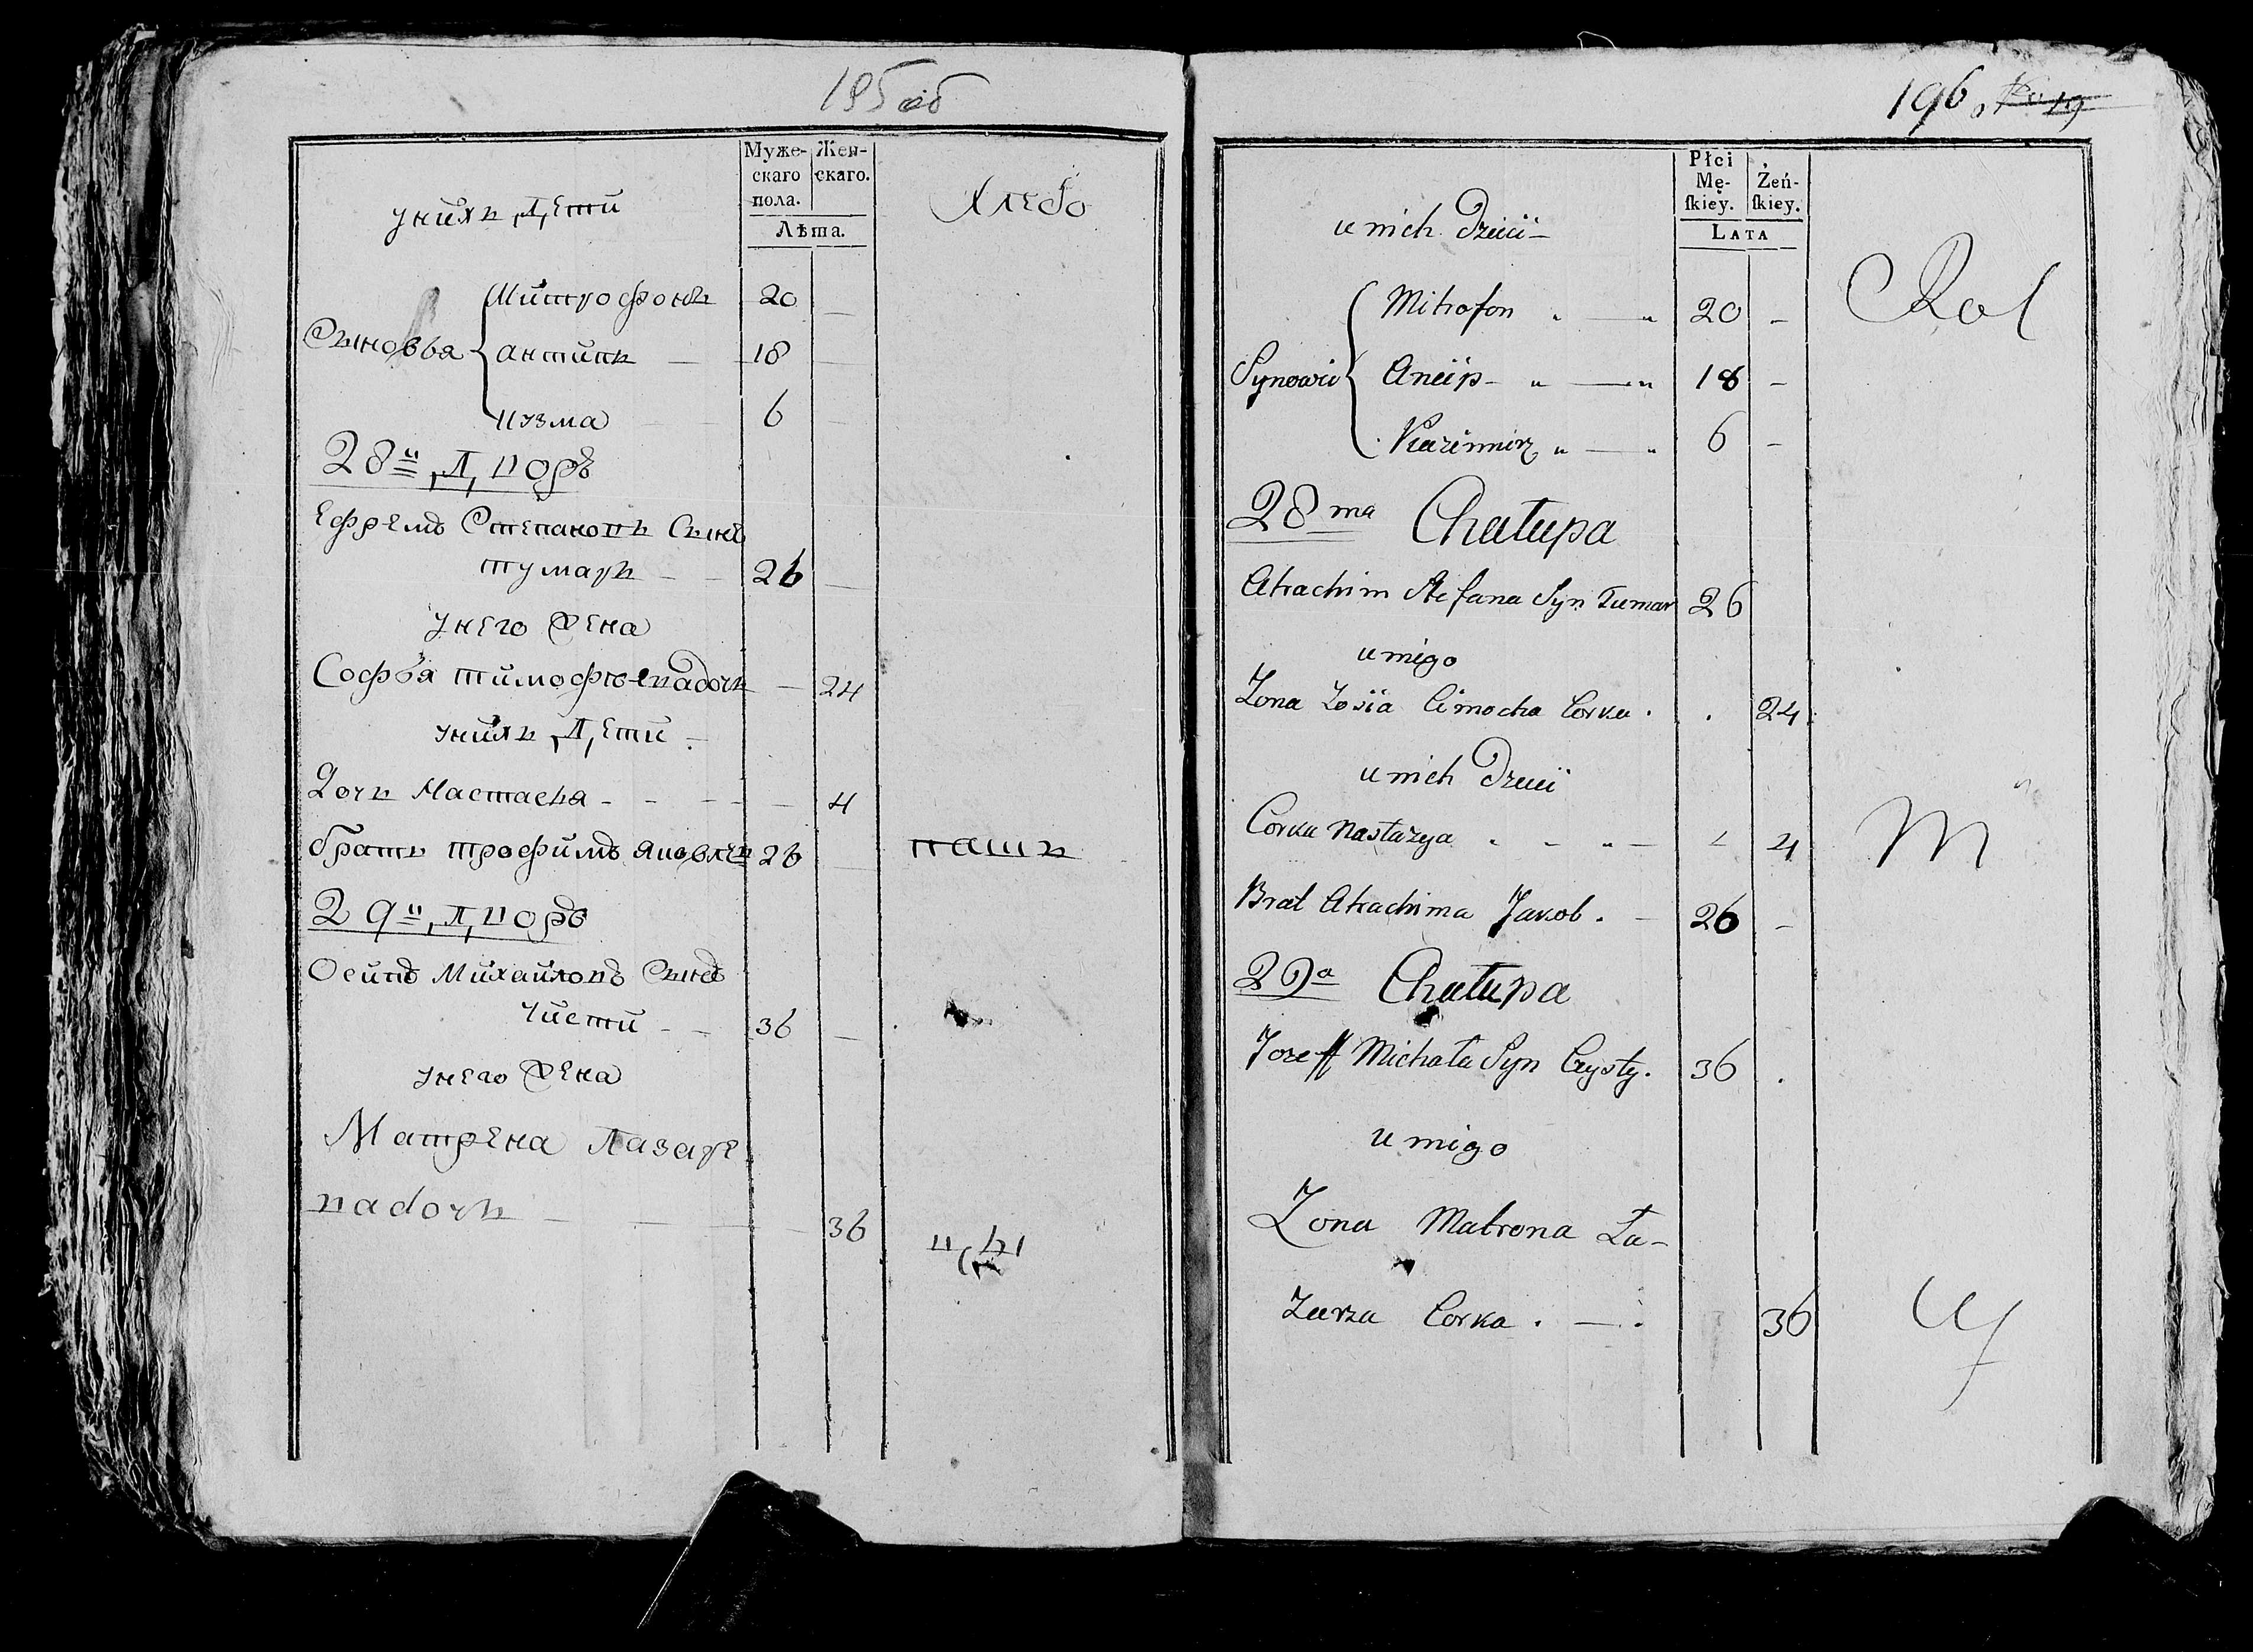 195 об
Муже-
скаго
пола.
Жен-
скаго.
Лѣта.
унихъ дети
Хлебо
Сыновья
Митрофонъ 20 —
антипъ — 18 —
кузма — 6 —
28й дворъ
Ефремъ Степановъ Сынъ
тумаръ — — 26 —
унего жена
Софья тимофеевадочь — 24
унихъ дети
Дочь Настасья - - - - — 4
братъ трофимъ яковлевъ 26 — пашъ
29й дворъ
Осипъ Михайловъ Сынъ
Чисти — — 36 —
унего жена
Матрена Лазаре
вадочь — — — — 36
196
Płci
Mę-
ſkiey.
Żeń-
ſkiey.
LATA
u nich Dzieci —
Rol
Synowie
Mitrofon " — " 20 —
Ancip - " — " 18 —
Kazimierz " — " 6 —
28ma Chałupa
Atrachim Stefana Syn Tumar 26
u niego
Zona Zosia Cimocha Corka . . 24
u nich Dzieci
Corka Nastazya - - " — 4
M
Brat Atrachima Jakob . — 26 —
29a Chałupa
Jozeff Michała Syn Czysty. 36 .
u niego
Zona Matrona Ła-
zarza Corka . — . 36